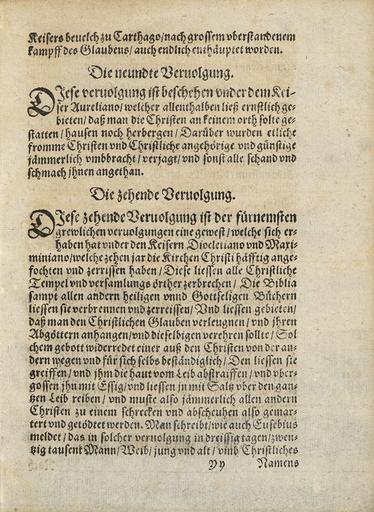 Keisers beuelch zu Carthago/nach grossem vberstandenem
kampff des Glaubens/ auch endlich enthäuptet worden.
Die neundte Veruolgung.
DJese veruolgung ist beschehen vnder dem Kei-
ser Aureliano/ welcher allenthalben ließ ernstlich ge-
bieten/ daß man die Christen an keinem orth solte ge-
statten/ hausen noch herbergen/ Darüber wurden etliche
fromme Christen vnd Christliche angehörige vnd günstige
jämmerlich vmbbracht/ verjagt/ vnd sonst alle schand vnd
schmach jhnen angethan.
Die zehende Veruolgung.
DJese zehende Veruolgung ist der fürnemsten
grewlichen veruolgungen eine gewest/ welche sich er-
haben hat vnder den Keisern Diocletiano vnd Maxi-
miniano/welche zehen jar die Kirchen Christi häfftig ange-
fochten vnd zerrissen haben/ Diese liessen alle Christliche
Tempel vnd versamlungs örther zerbrechen/ Die Biblia
sampt allen andern heiligen vnnd Gottseligen Büchern
liessen sie verbrennen vnd zerreissen/ Vnd liessen gebieten/
daß man den Christlichen Glauben verleugnen/ vnd jhren
Abgöttern anhangen/vnd dieselbigen verehren sollte/ Sol
chem gebott widerredet einer auß den Christen von der an-
dern wegen vnd für sich selbs beständiglich/ Den liessen sie
greiffen/ vnd jhm die haut vom Leib abstraiffen/ vnd vber-
gossen jhn mit Essig/ vnd liessen jn mit Saltz vber den gan-
tzen Leib reiben/ vnd muste also jämmerlich allen andern
Christen zu einem schrecken vnd abscheuhen also gemar-
tert vnd getödtet werden. Man schreibt/wie auch Eusebius
meldet/ das in solcher veruolgung in dreissig tagen/ zwen-
tzig tausent Mann/ Weib/ jung vnd alt/ vmb Christliches
Yy Namens